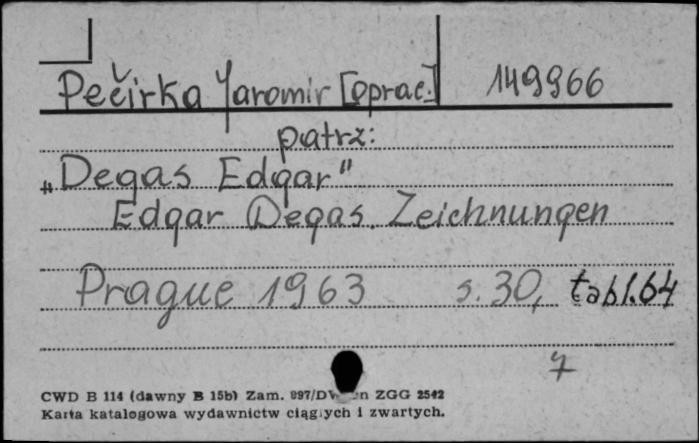 Pečirka Jaromir [oprac.] 149966
patrz:
„Degas Edgar"
Edgar Degas. Zeichnungen
Prague 1963 s. 30, tabl. 64
7
CWD B 114 (dawny B 15b) Zam. 997/ ZGG 2542
Karta katalogowa wydawnictw ciągłych i zwartych.